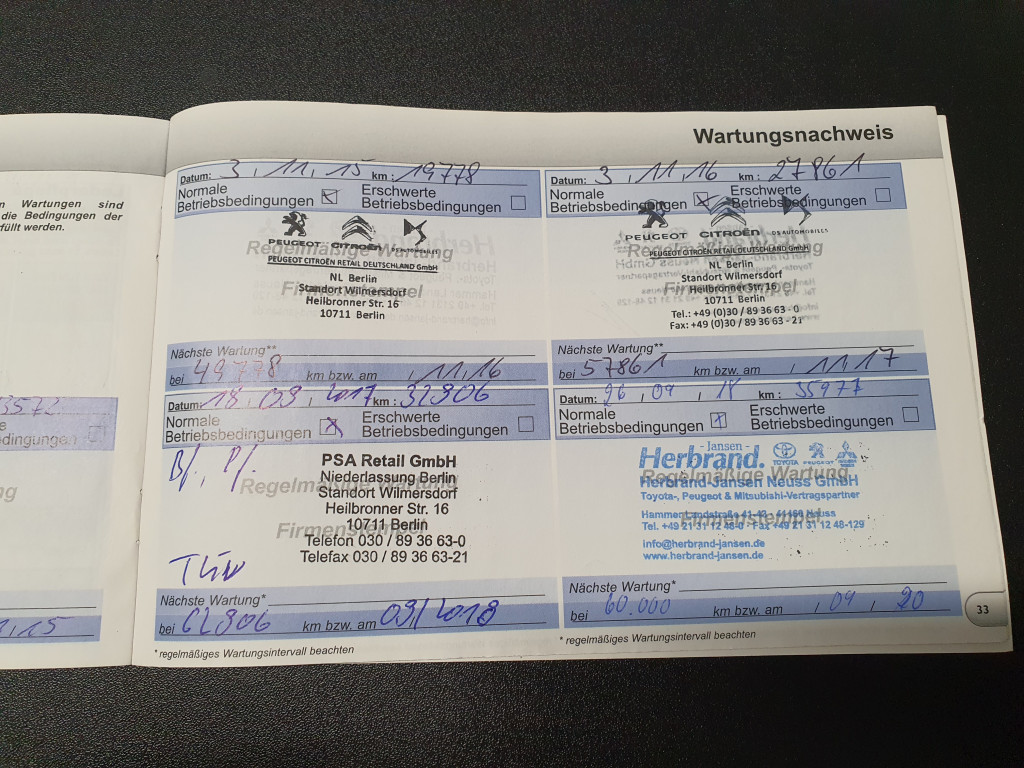 Wartungsnachweis
n Wartungen sind
die Bedingungen der
füllt werden.
Datum: 3 . 11 . 15 km : 19778
Normale
Betriebsbedingungen
Erschwerte
Betriebsbedingungen
PEUGEOT CITROËN DS AUTOMOBILES
Regelmäßige Wartung
PEUGEOT CITROËN RETAIL DEUTSCHLAND GmbH
NL Berlin
Firmenstempel
Standort Wilmersdorf
Heilbronner Str. 16
10711 Berlin
Nächste Wartung**
bei 49778 km bzw. am , 11, 16
Datum: 3 . 11 . 16 km : 27861
Normale
Betriebsbedingungen
Erschwerte
Betriebsbedingungen
PEUGEOT CITROËN DS AUTOMOBILES
Regelmäßige Wartung
PEUGEOT CITROËN RETAIL DEUTSCHLAND GmbH
NL Berlin
Standort Wilmersdorf
Firmenstempel
Heilbronner Str. 16
10711 Berlin
Tel.: +49 (0)30 / 89 36 63 - 0
Fax: +49 (0)30 / 89 36 63 - 21
Nächste Wartung**
bei 57861 km bzw. am , 11, 17
Datum: 18 . 09 . 2017 km : 32906
Normale
Betriebsbedingungen
Erschwerte
Betriebsbedingungen
B/. P/.
PSA Retail GmbH
Niederlassung Berlin
Regelmäßige Wartung
Standort Wilmersdorf
Heilbronner Str. 16
10711 Berlin
Firmenstempel
Telefon 030 / 89 36 63-0
Telefax 030 / 89 36 63-21
TÜV
Nächste Wartung*
bei 62906 km bzw. am 09/2018
* regelmäßiges Wartungsintervall beachten
Datum: 26 . 09 . 18 km : 35977
Normale
Betriebsbedingungen
Erschwerte
Betriebsbedingungen
- Jansen -
Herbrand. TOYOTA PEUGEOT MITSUBISHI
Regelmäßige Wartung
Herbrand-Jansen Neuss GmbH
Toyota-, Peugeot & Mitsubishi-Vertragspartner
Hammer Landstraße 41-43 - 41460 Neuss
Firmenstempel
Tel. +49 21 31 12 48-0 · Fax +49 21 31 12 48-129
info@herbrand-jansen.de
www.herbrand-jansen.de
Nächste Wartung*
bei 60.000 km bzw. am , 09 , 20
* regelmäßiges Wartungsintervall beachten
33